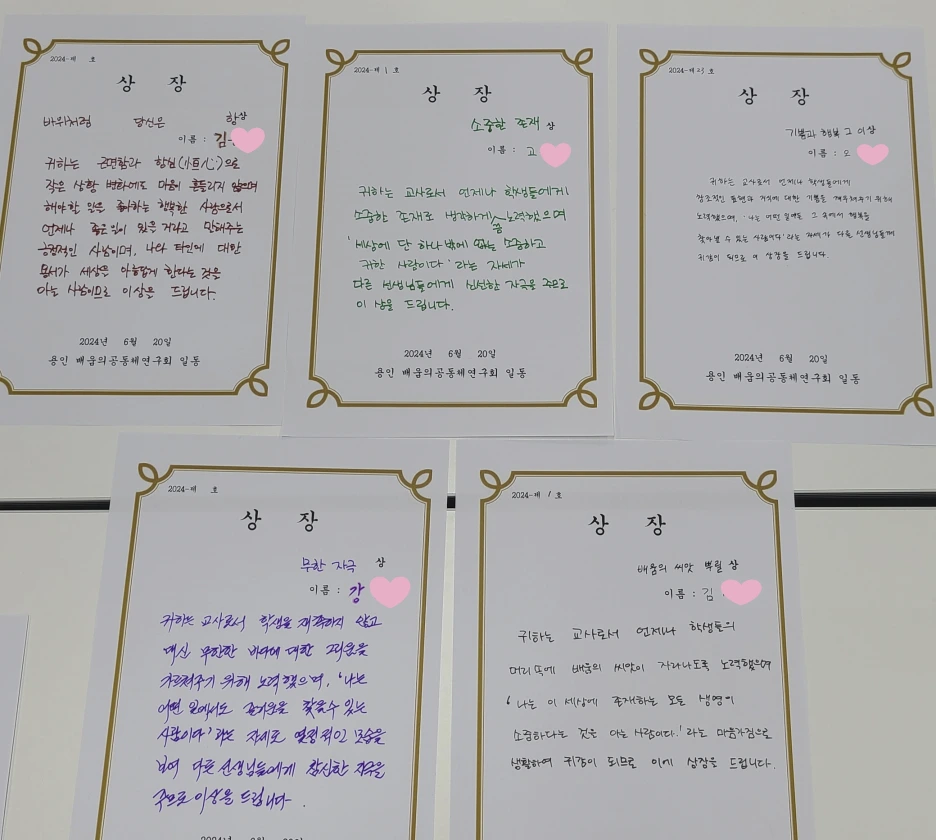 2024-제 호
상 장
바위처럼 당신은 항상
이름 : 김
귀하는 근면함과 항심(恒心)으로
작은 상황 변화에도 마음이 흔들리지 않으며
해야할 일은 좋아하는 행복한 사람으로서
언제나 좋은 일이 있을 거라고 말해주는
긍정적인 사람이며, 나와 타인에 대한
용서가 세상은 아름답게 한다는 것을
아는 사람이므로 이상은 드립니다.
2024년 6월 20일
용인 배움의공동체연구회 일동
2024-제 1 호
상 장
소중한 존재 상
이름 : 고
귀하는 교사로서 언제나 학생들에게
소중한 존재로 생각하게 노력했으며
'세상에 단 하나 밖에 없는 소중하고
귀한 사람이다' 라는 자세가
다른 선생님들에게 신선한 자극을 주므로
이 상을 드립니다.
2024년 6월 20일
용인 배움의공동체연구회 일동
2024-제 23 호
상 장
기쁨과 행복 그 이상
이름 : 오
귀하는 교사로서 언제나 학생들에게
창조적인 표현과 지식에 대한 기쁨을 깨워주기 위해
노력했으며, '나는 어떤 일에든 그 속에서 행복을
찾아낼 수 있는 사람이다'라는 자세가 다른 선생님들께
귀감이 되므로 이 상장을 드립니다.
2024년 6월 20일
용인 배움의공동체연구회 일동
2024-제 호
상 장
무한 자극 상
이름 : 강
귀하는 교사로서 학생을 재촉하지 않고
대신 무한한 바다에 대한 그리움을
가르쳐주기 위해 노력했으며, '나는
어떤 일에서도 즐거움을 찾을 수 있는
사람이다' 라는 자세로 열정적인 모습을
보여 다른 선생님들에게 참신한 자극을
주므로 이상을 드립니다.
2024-제 1 호
상 장
배움의 씨앗 뿌릴 상
이름 : 김
귀하는 교사로서 언제나 학생들의
머리 속에 배움의 씨앗이 자라나도록 노력했으며
'나는 이 세상에 존재하는 모든 생명이
소중하다는 것은 아는 사람이다.' 라는 마음가짐으로
생활하여 귀감이 되므로 이에 상장을 드립니다.